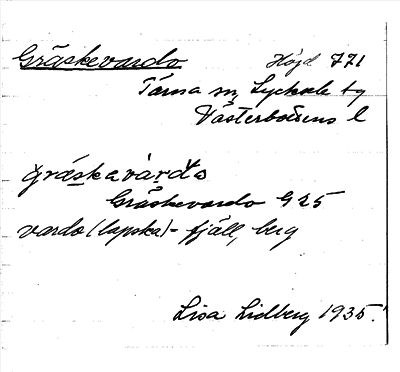 Gräskevardo Höjd 771
Tärna sn, Lycksele tg
Västerbottens l
græskavàrdo
Gräskevardo G 25
vardo (lapska) - fjäll, berg
Lisa Lidberg 1935.